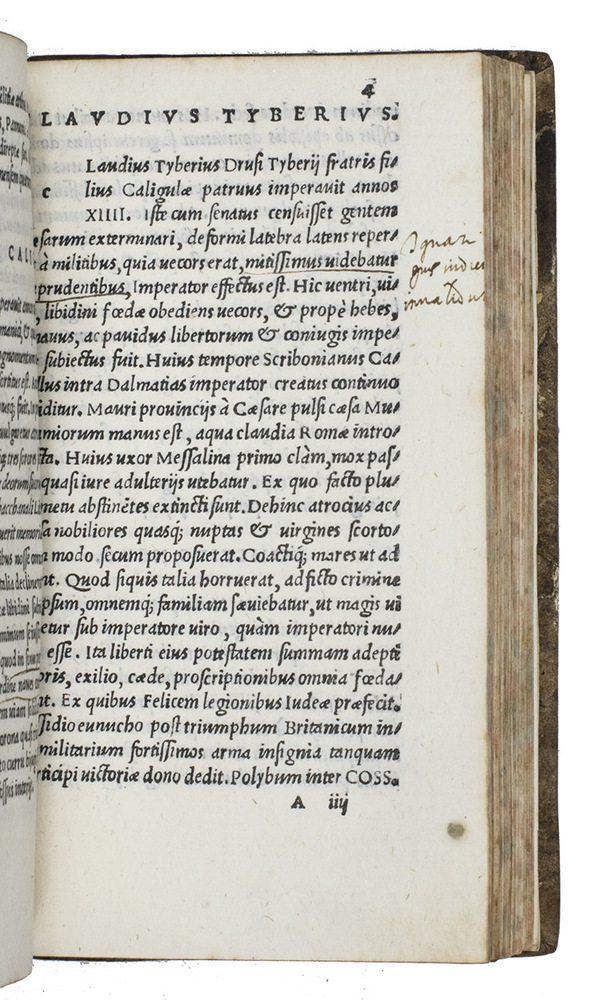 4
LAVDIVS TYBERIVS.
Laudius Tyberius Drusi Tyberij fratris fi⸗
c lius Caligulæ patruus imperauit annos
XIIII. Iste cum senatus censuisset gentem
esarum exterminari, deformi latebra latens reper⸗
à militibus, quia uecors erat, mitissimus uidebatur
prudentibus, Imperator effectus est. Hic uentri, ui⸗
, libidini fœdæ obediens uecors, & propè hebes,
nauus, ac pauidus libertorum & coniugis impe⸗
subiectus fuit. Huius tempore Scribonianus Ca⸗
llus intra Dalmatias imperator creatus continuo
iditur. Mauri prouincijs à Cæsare pulsi cæsa Mu⸗
miorum manus est, aqua claudia Romæ intro⸗
cta. Huius uxor Messalina primo clàm, mox pas⸗
quasi iure adulterijs utebatur. Ex quo facto plu⸗
metu abstinẽtes extincti sunt. Dehinc atrocius ac⸗
sa nobiliores quasq; nuptas & uirgines scorto⸗
modo secum proposuerat. Coactiq; mares ut ad
nt. Quod siquis talia horruerat, adficto crimine
ipsum, omnemq; familiam sæuiebatur, ut magis ui
etur sub imperatore uiro, quàm imperatori nu⸗
esse. Ita liberti eius potestatem summam adepti
pris, exilio, cæde, proscriptionibus omnia fœda⸗
nt. Ex quibus Felicem legionibus Iudeæ præfecit.
ssidio eunucho post triumphum Britanicum in⸗
militarium fortissimos arma insignia tanquam
rticipi uictoriæ dono dedit. Polybum inter COSS.
A iiij
CALI